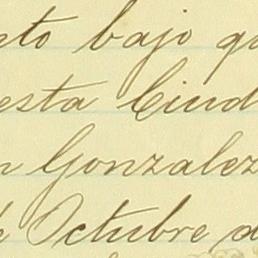 nto bajo qu
esta Ciud
n Gonzalez
e Octubre d